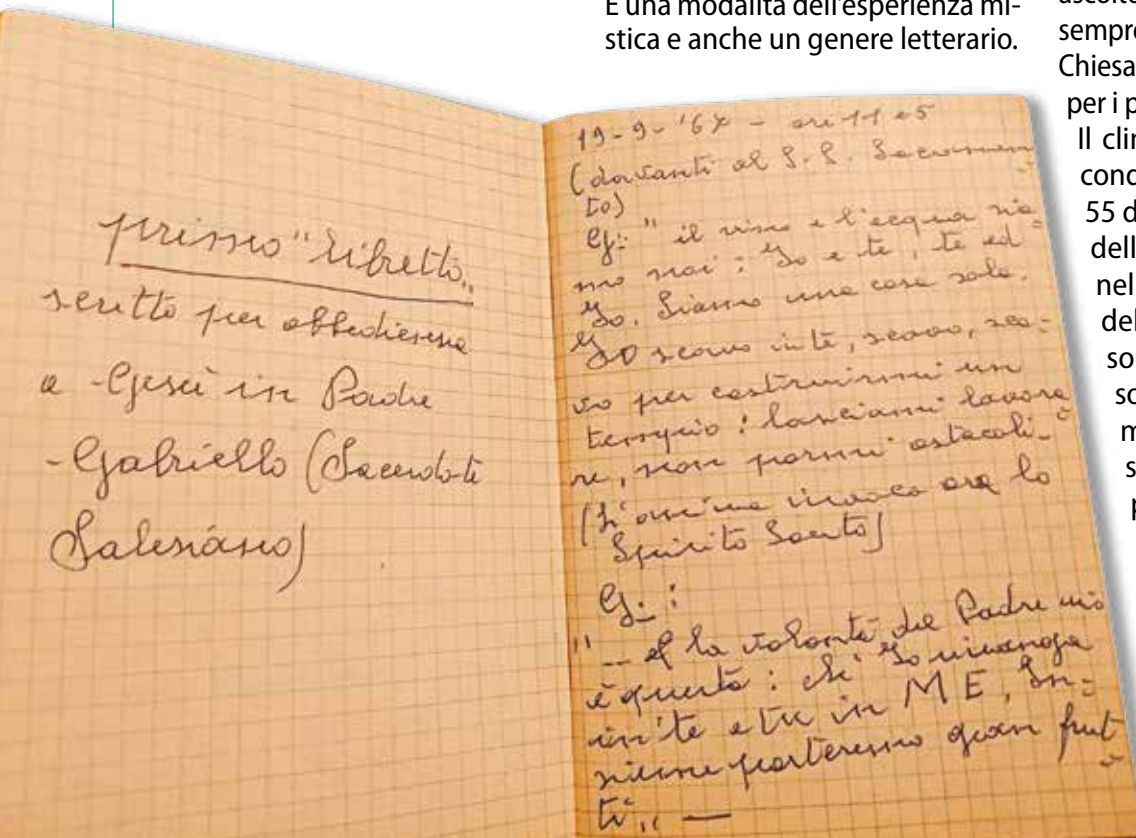 È una modalità dell'esperienza mi-
stica e anche un genere letterario.
sempre
Chiesa
per i p
Il clim
cond
55 d
dell
nel
del
so
sc
m
s
p
primo "libretto"
scritto per obbedienza
a - Gesù in Padre
- Gabriello (Sacerdote
Salesiano)
19-9-'67 - ore 11 e 5
(davanti al S.S. Sacramen
to)
G: "il vino e l'acqua sia=
mo noi: Io e te, te ed
Io. Siamo una cosa sola.
IO scavo in te, scavo, sca=
vo per costruirmi un
tempio: lasciami lavora
re, non pormi ostacoli-
(L'anima invoca ora lo
Spirito Santo)
G.:
"-- e la volontà del Padre mio
è questa: ch'Io rimanga
in te e tu in ME, In=
sieme porteremo gran frut
to" —